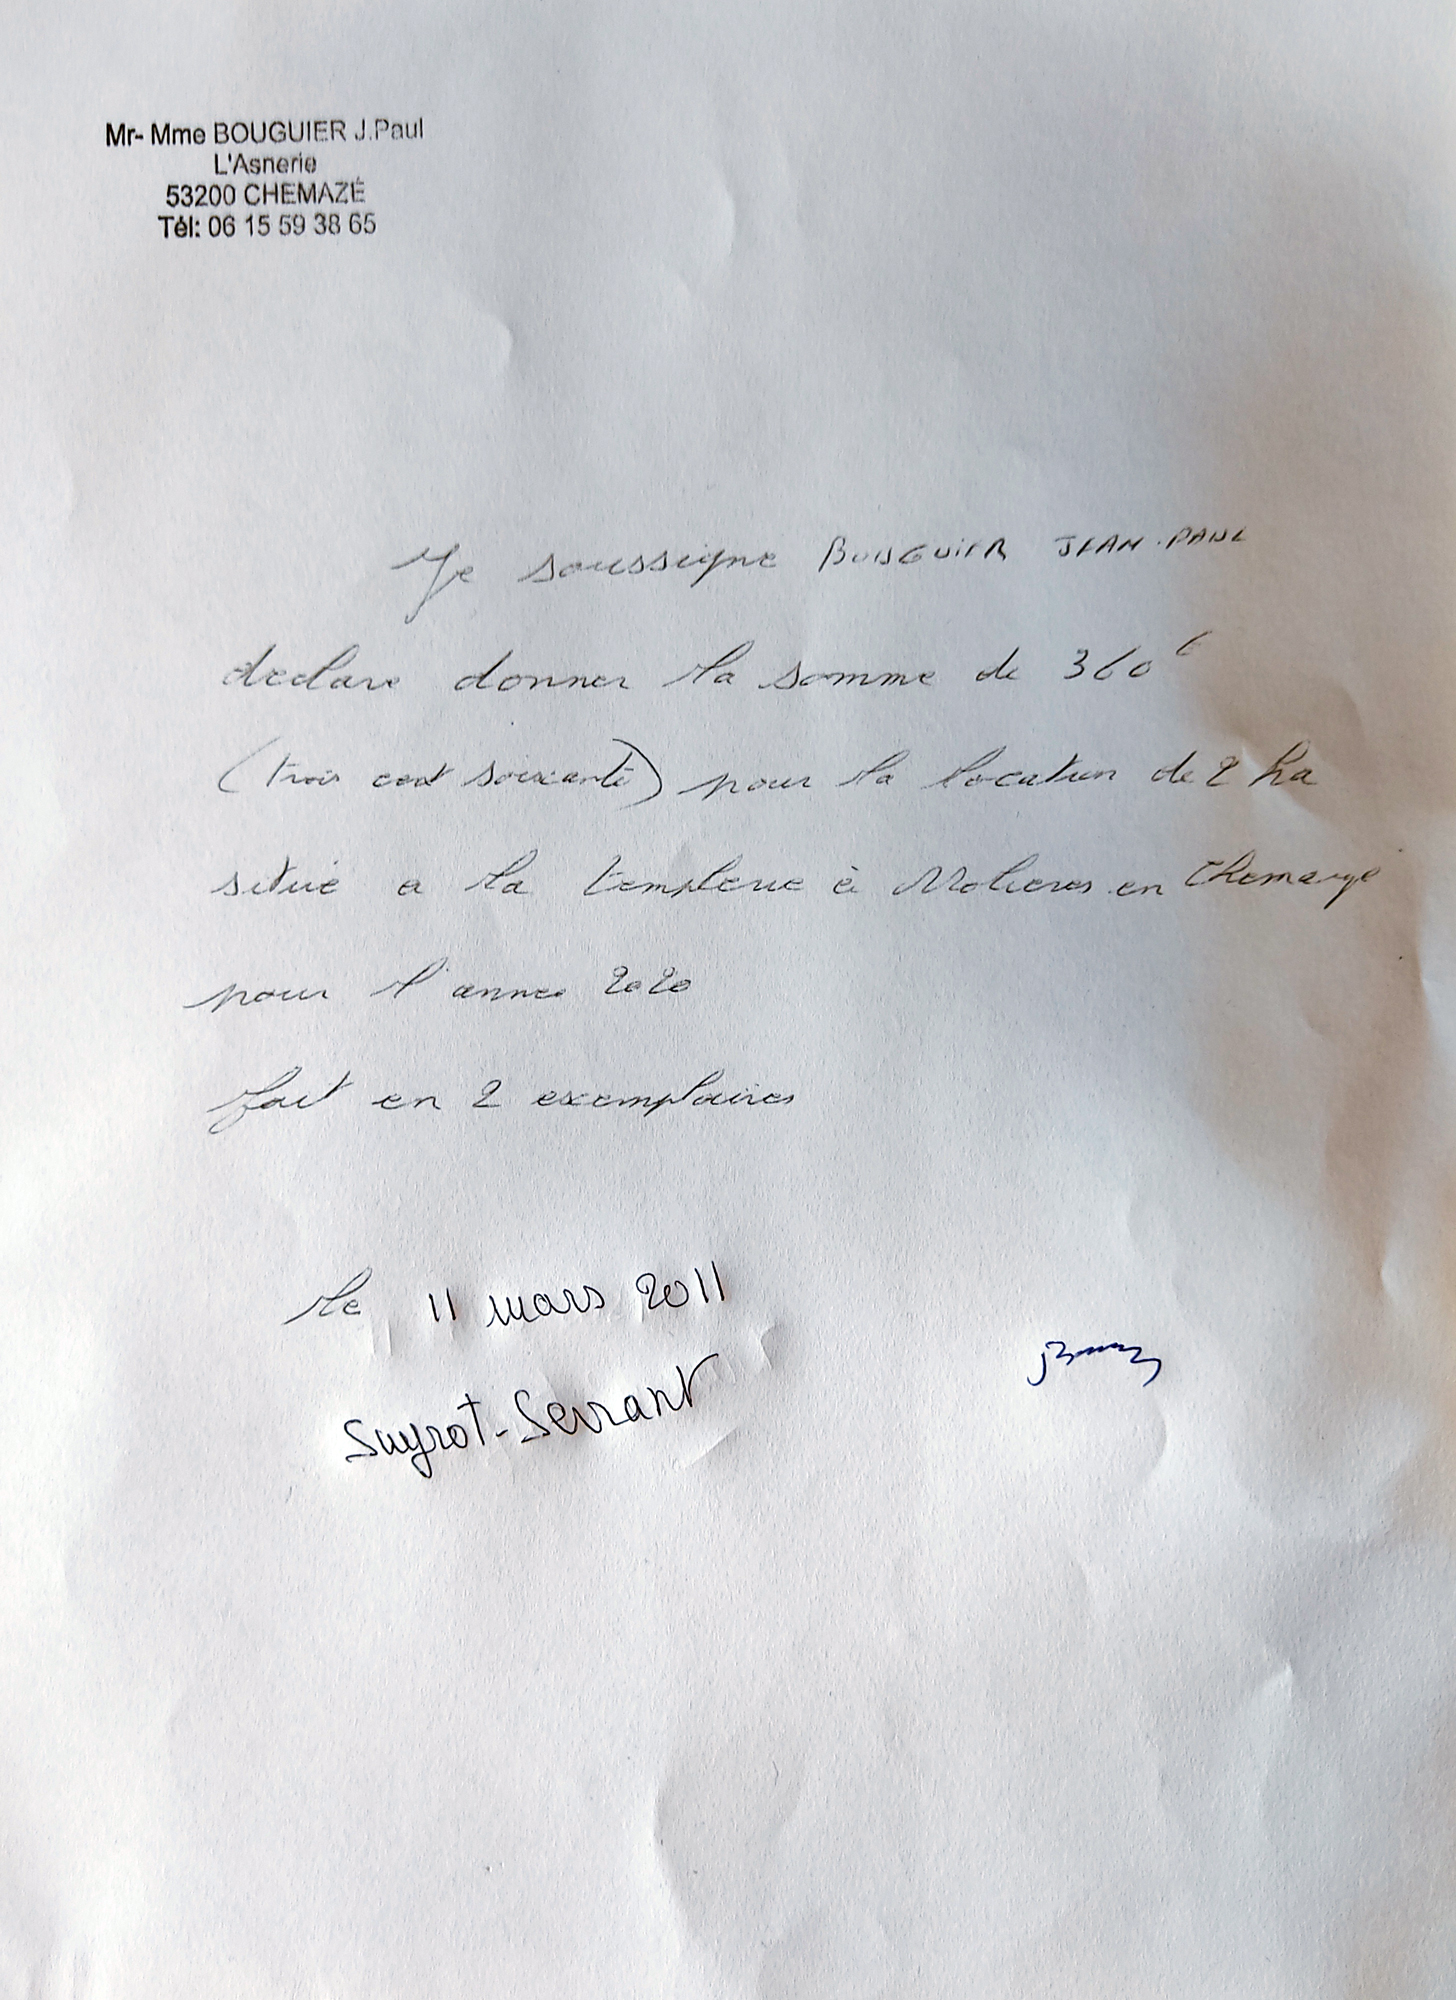 Mr- Mme BOUGUIER J.Paul
L'Asnerie
53200 CHEMAZÉ
Tél: 06 15 59 38 65
Je soussigne BOUGUIER JEAN-PAUL
declare donner la somme de 360 €
(trois cent soixante) pour la location de 2 ha
situé a la templerie à Molieres en Chemazé
pour l'annee 2020
fait en 2 exemplaires
le 11 mars 2011
Suyrot-Serrant